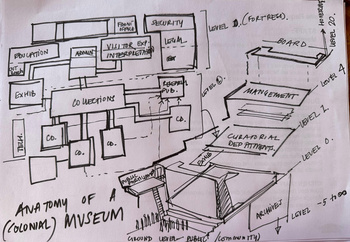 FRONT OFFICE
SECURITY
LEVEL 0. (FORTRESS)
EDUCATION
ADMIN
VISITOR EXP
INTERPRETATION
LEGAL
EXHIB
COLLECTIONS
RESEARCH
PUB.
CO.
CO.
CO.
CO.
BOARD
LEVEL 20.
LEVEL 4
MANGEMENT
LEVEL 1.
CURATORIAL
DEPTMENTS.
LEVEL 0.
ANATOMY OF A
(COLONIAL) MUSEUM
ARCHIVES
LEVEL -5 to
GROUND LEVEL PUBLIC (COMMUNITY)